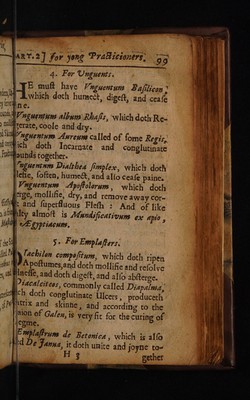 ART. 2] for yong Practicioners. 99
4. For Unguents.
HE must have Vnguentum Basilicon,
which doth humect, digest, and cease
ne.
Vnguentum album Rhasis, which doth Re-
gerate, coole and dry.
Vnguentum Aureum called of some Regis,
ich doth Incarnate and conglutinate
ounds together.
Vnguentum Dialthea simplex, which doth
lehe, soften, humect, and also cease paine.
Vnguentum Apostolorum, which doth
erge, mollifie, dry, and remove away cor-
and superfluous Flesh: And of like
alty almost is Mundificativum ex apio,
Ægyptiacum.
5. For Emplasters.
Diachilon compositum, which doth ripen
Apostumes, and doth mollifie and resolve
dnesse, and doth digest, and also absterge.
Diacalciteos, commonly called Diapalma,
ich doth conglutinate Ulcers, produceth
atrix and skinne, and according to the
nion of Galen, is very fit for the curing of
legme.
Emplastrum de Betonica, which is also
ed De Janua, it doth unite and joyne to-
H 3 gether